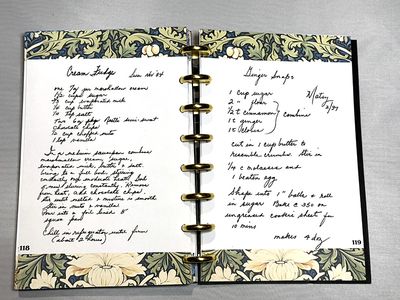 Cream Fudge
one 7oz jar marshmallow cream
1½ cups sugar
⅔ cup evaporated milk
¼ cup butter
¼ tsp salt
semi sweet
chocolate chips
½ cup chopped nuts
1 tsp vanilla
In a medium saucepan combine
marshmallow cream, sugar,
evaporated milk, butter & salt.
bring to a full boil, stirring
constantly over moderate heat, boil
5 min stirring constantly. Remove
from heat, add chocolate chips,
stir until melted & mixture is smooth
Stir in nuts & vanilla.
Pour into a foil lined 8"
square pan
Chill in refrigerator until firm
(about 2 hours)
118
Ginger Snaps
1 cup sugar
2 " flour
½ t cinnamon
combine
1 t ginger
1 t
cut in 1 cup butter to
resemble crumbs. Stir in
¼ c molasses and
1 beaten egg
Shape into 1" balls & roll
in sugar Bake @ 350 on
ungreased cookie sheet for
10 mins
makes 4 doz
119